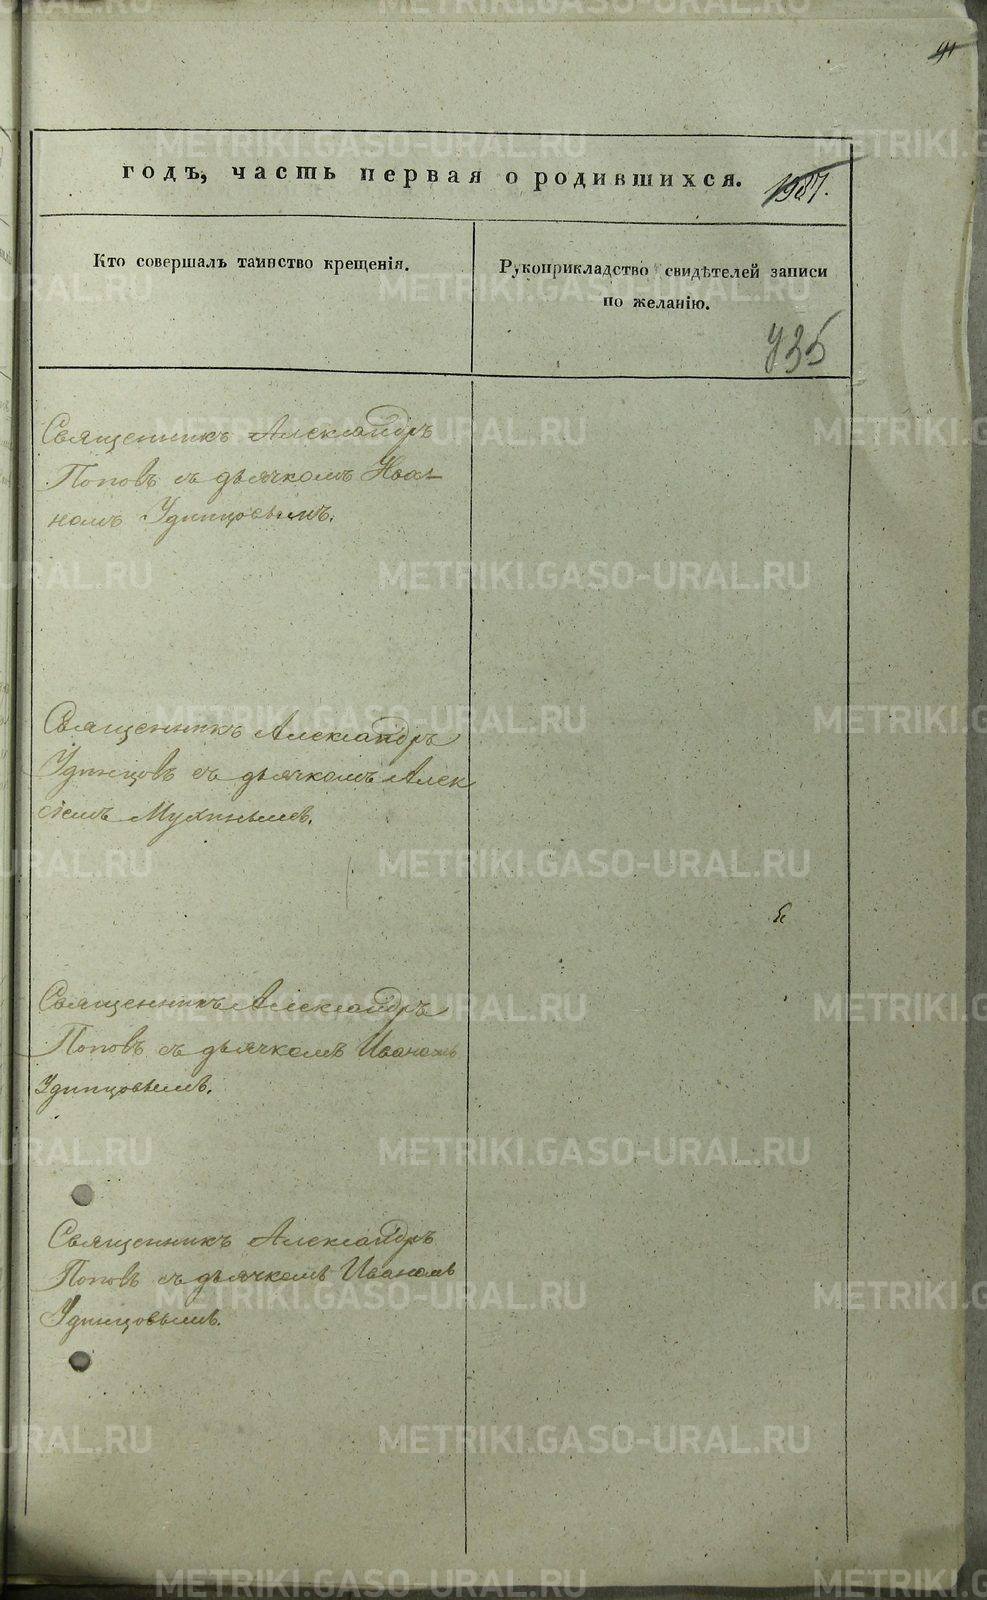 91
годъ, часть первая о родившихся.
1987.
Кто совершалъ таинство крещенія.
Рукоприкладство свидѣтелей записи
по желанію.
735
Священникъ Александръ
Поповъ съ дьячкомъ Ива-
номъ Удинцовымъ.
Священникъ Александръ
Удинцовъ съ дьячкомъ Алек
сѣемъ Мухинымъ.
Священникъ Александръ
Поповъ съ дьячкомъ Иваномъ
Удинцовымъ.
Священникъ Александръ
Поповъ съ дьячкомъ Иваномъ
Удинцовымъ.
METRIKI.GASO-URAL.RU